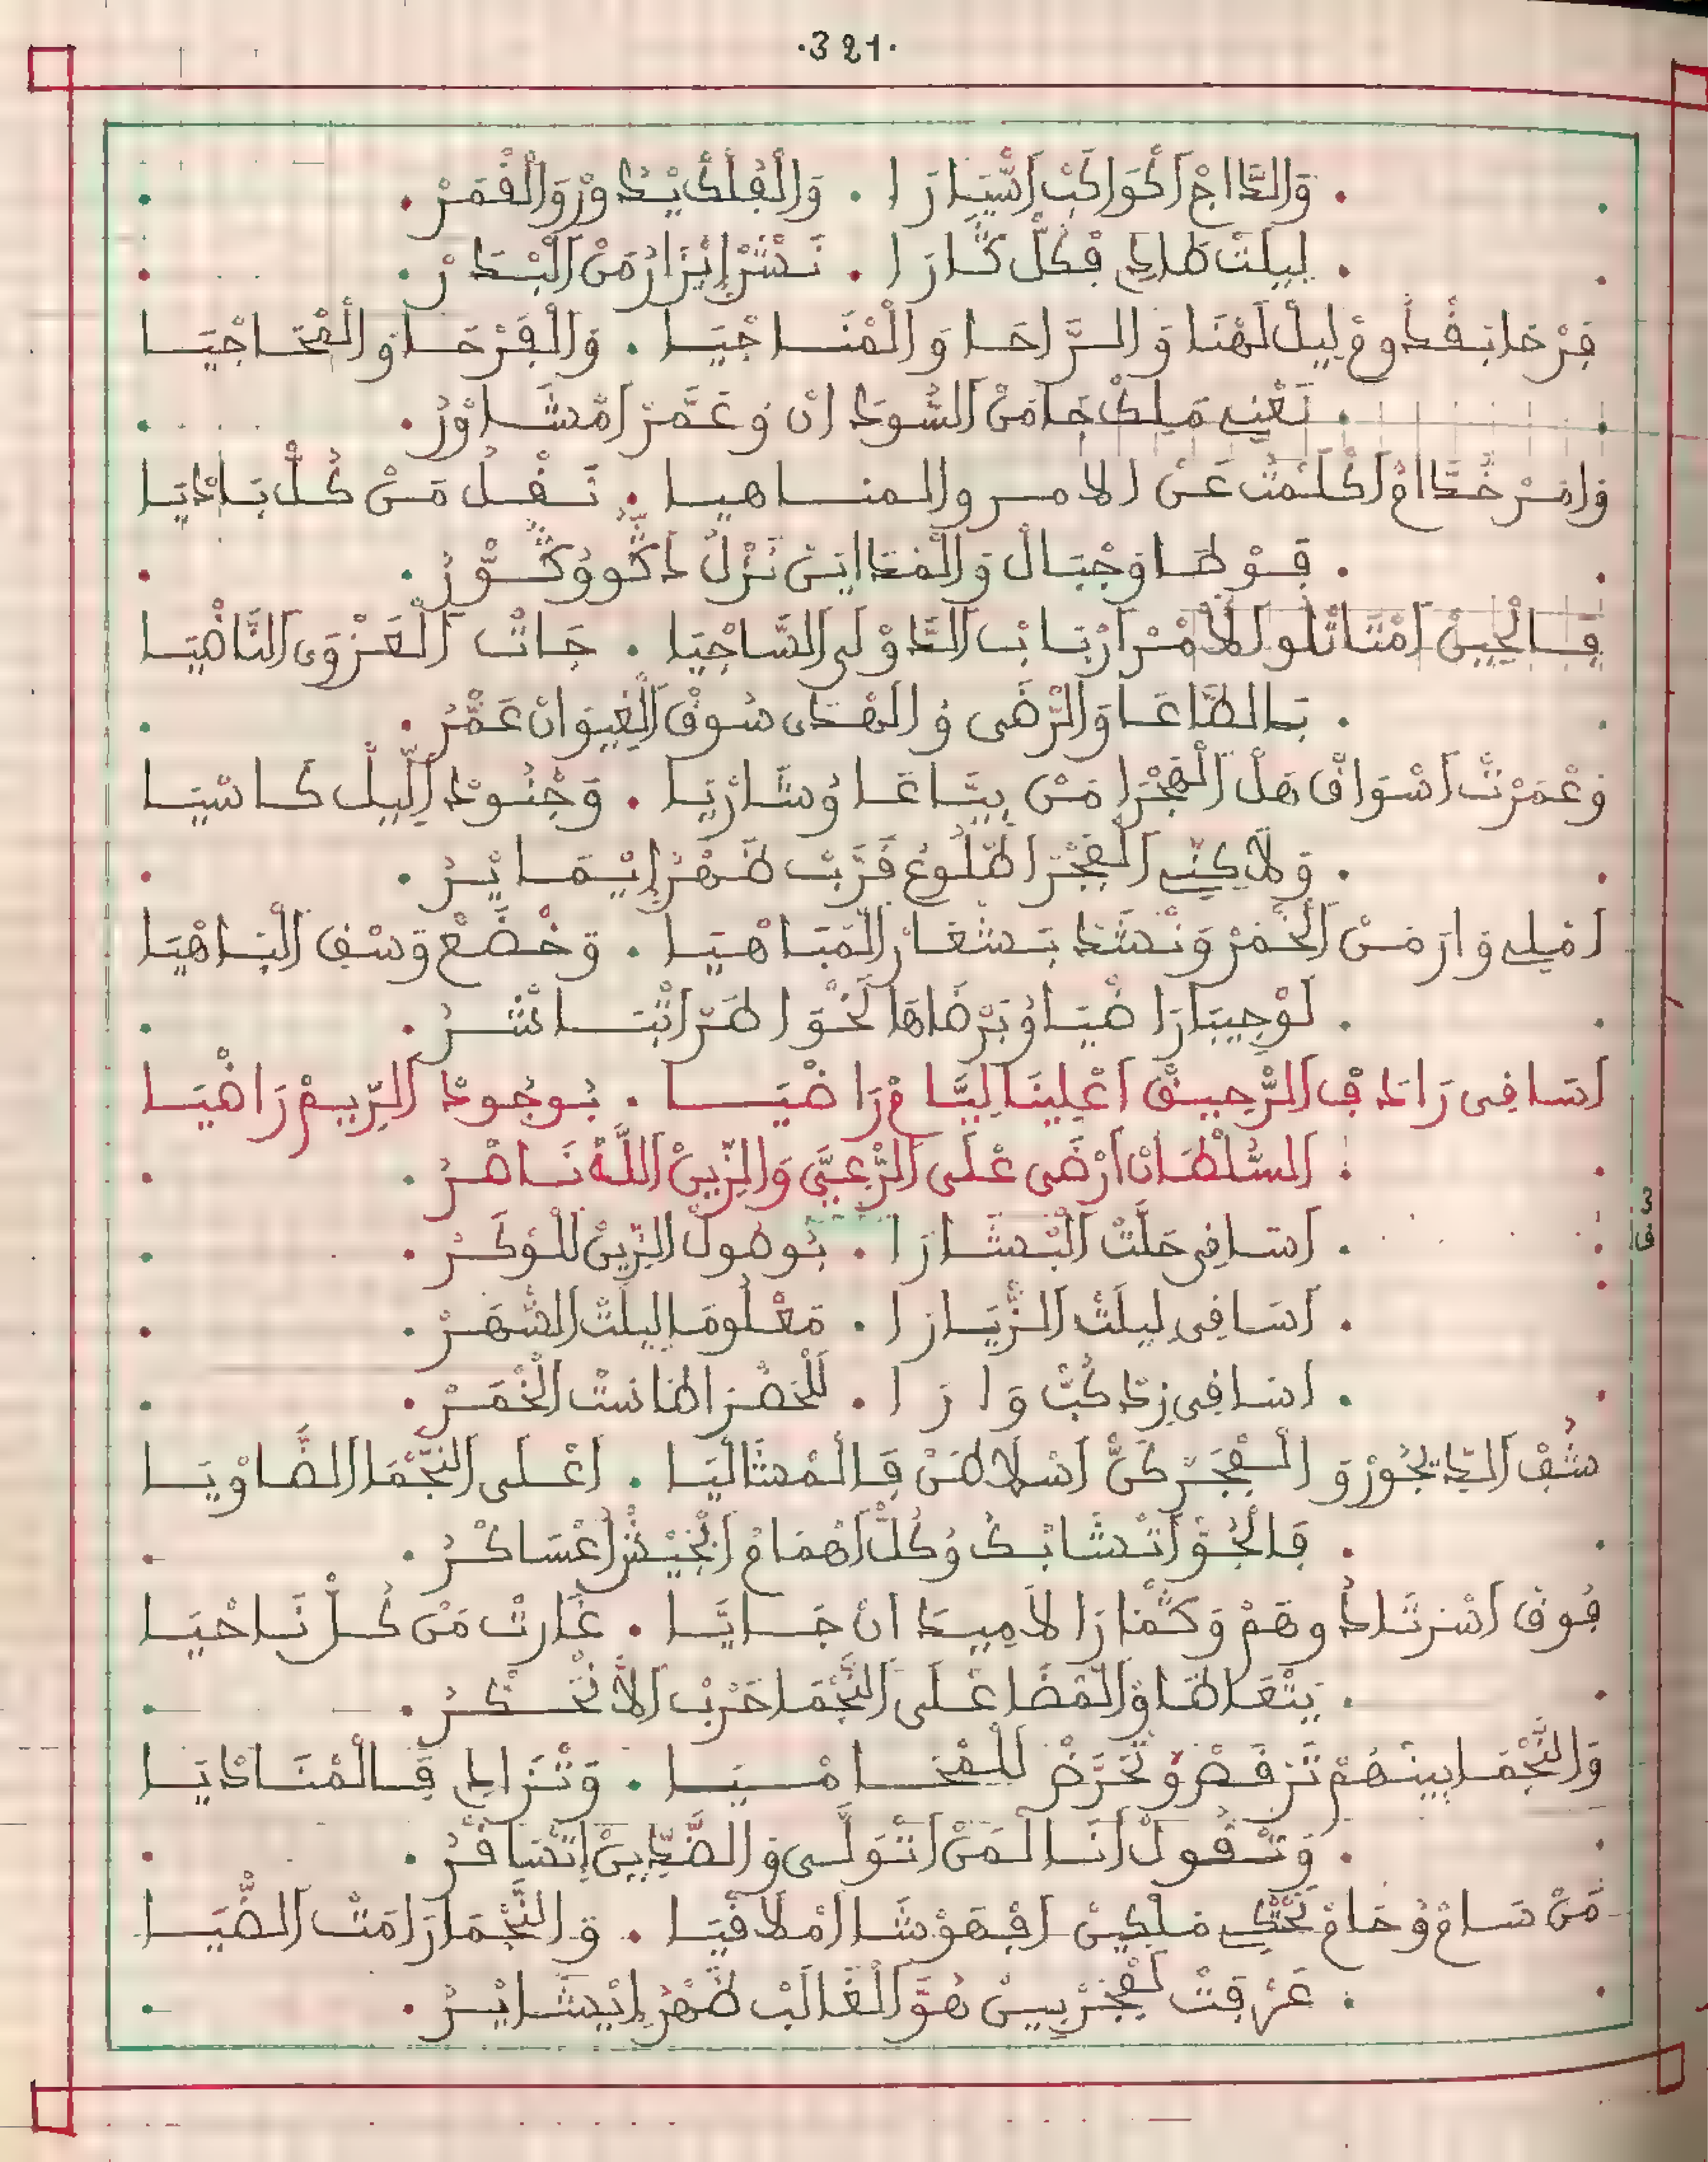 ·321·
وَالدَّاجْ اَكْوَاكَبْ اَسَّيَّارَا . وَالْفَلْكْ يْدُورْ وَالْقْمَرْ .
لِيلْتْ طَالِع فْكُلّْ تَارَا . نَشْرْ إِيْزَارُ مَنْ الْبْدَرْ .
فَرْحَا بَقْدُومْ لِيلْ لَهْنَا وَالرَّاحَا وَالْمْنَاجْيَا . وَالْفَرْحَا وَالْفْجَاجْيَا
تَعْنِي مَلِكْ جَا مَنْ السُّودَانْ وْعَمَّرْ اَمْشَاوْرُ .
وَامَرْ خَدَّامْ اَكْلَمْتْ عَنْ الامر والمناهيا . تَقْلُ مَنْ كُلّْ بَادْيَا
فَوْطَا وَجْبَالْ وَالْمْدَايَنْ نَزْلْ دَكُّو وُكُّورْ .
فَالْحِينْ اَمْتَاتْلُو لَلاَمْرْ اَرْبَابْ الدَّوْلَى السَّاجْيَا . جَاتْ الْعَزْوَى النَّاهْيَا
بَالطَّاعَا وَالرّْضَى وَالهْدَى سُوقْ الْغِيوَانْ عَمّْرُ .
وَعْمَرْتْ اَسْوَاقْ هَلْ الْهَجْرَا مَنْ بِيَّاعَا وُشَارْيَا . وَجْنُودْ اَلِّيلْ كَاسْيَا
وَلاَكِنِّي الْفْجَرْ اَطْلُوعْ قَرَّبْ ظَهْرْ إِيْمَايْرُ .
اَمْلِي وَارَ مَنْ الْخْمَرْ وَنْشَدْ بَشْعَارْ الْمْبَاهْيَا . وَخْضَعْ وَسْفْ الْبَاهْيَا
لَوْجِيبَارَا ضْيَا وُبَرْضَاهَا لَخْوَاطَرْ اَتْبَاشْرُ .
اَسَاقِى رَادَفْ الرّْحِيقْ اَعْلِينَا لِيَّامْ رَاضْيَا . بُوجُودْ الرِّيمْ رَاهْيَا
السُّلْطَانْ اَرْضَى عْلَى الرّْعِيَّ وَالزِّينْ اللَّهْ نَاصْرُ .
اَسَاقِى حَلَّتْ الْبْشَارَا . بُوصُولْ الزِّينْ لْلْوْكَرْ .
3
ف
اَسَاقِى لِيلَتْ الزّْيَارَا . مَعْلُومَا لِيلَتْ الشّْهَرْ .
اسَاقِى زِدْ كُبّْ وَارَا . لَلْحَضْرَا طَاسْتْ الْخْمَرْ .
شُفْ الدَّيْجُورْ وَالْفْجَرْ كَنّْ اَسْلاَطَنْ فَالْمْشَالْيَا . اَعْلَى النَّجْمَا الضَّاوْيَا
فَالْجُوّْ اَتْشَابْكُ وُكُلّْ اَهْمَامْ اَبْجَيْشْ اَعْسَاكْرُ .
فُوقْ اَسْرْتَادُوهَمْ وَكَمَّارَا لاَمِيدَانْ جَايَّا . غَارْتْ مَنْ كُلّْ نَاحْيَا
يَتْعَاطَاوْ الْمْضَا عْلَى النَّجْمَا حَرْبْ اَلاَّ نْحَكْرُ .
وَالنَّجْمَا بِينْهُمْ تَرْفَصْ وُتْحَرَّضْ لَلْمْخَاصْمِيَا . وَتْنَادِي فَالْمْنَادْيَا
وَتْقُولْ اَنَا لْمَنْ اَتْوَلَّى وَالضَّدِّينْ إِتْصَافْرُ .
مَنْ سَامْ وُحَامْ تَحْكِي مَلْكِينْ اَفْهَوْشَا اَمْلاَقْيَا . وَالنَّجْمَا رَامَتْ الضّْيَا
عَرْفَتْ لَفْجَرْ بِينْ هُوَّ الْغَالَبْ ظَهْرْ إِيْشَايْرُ .